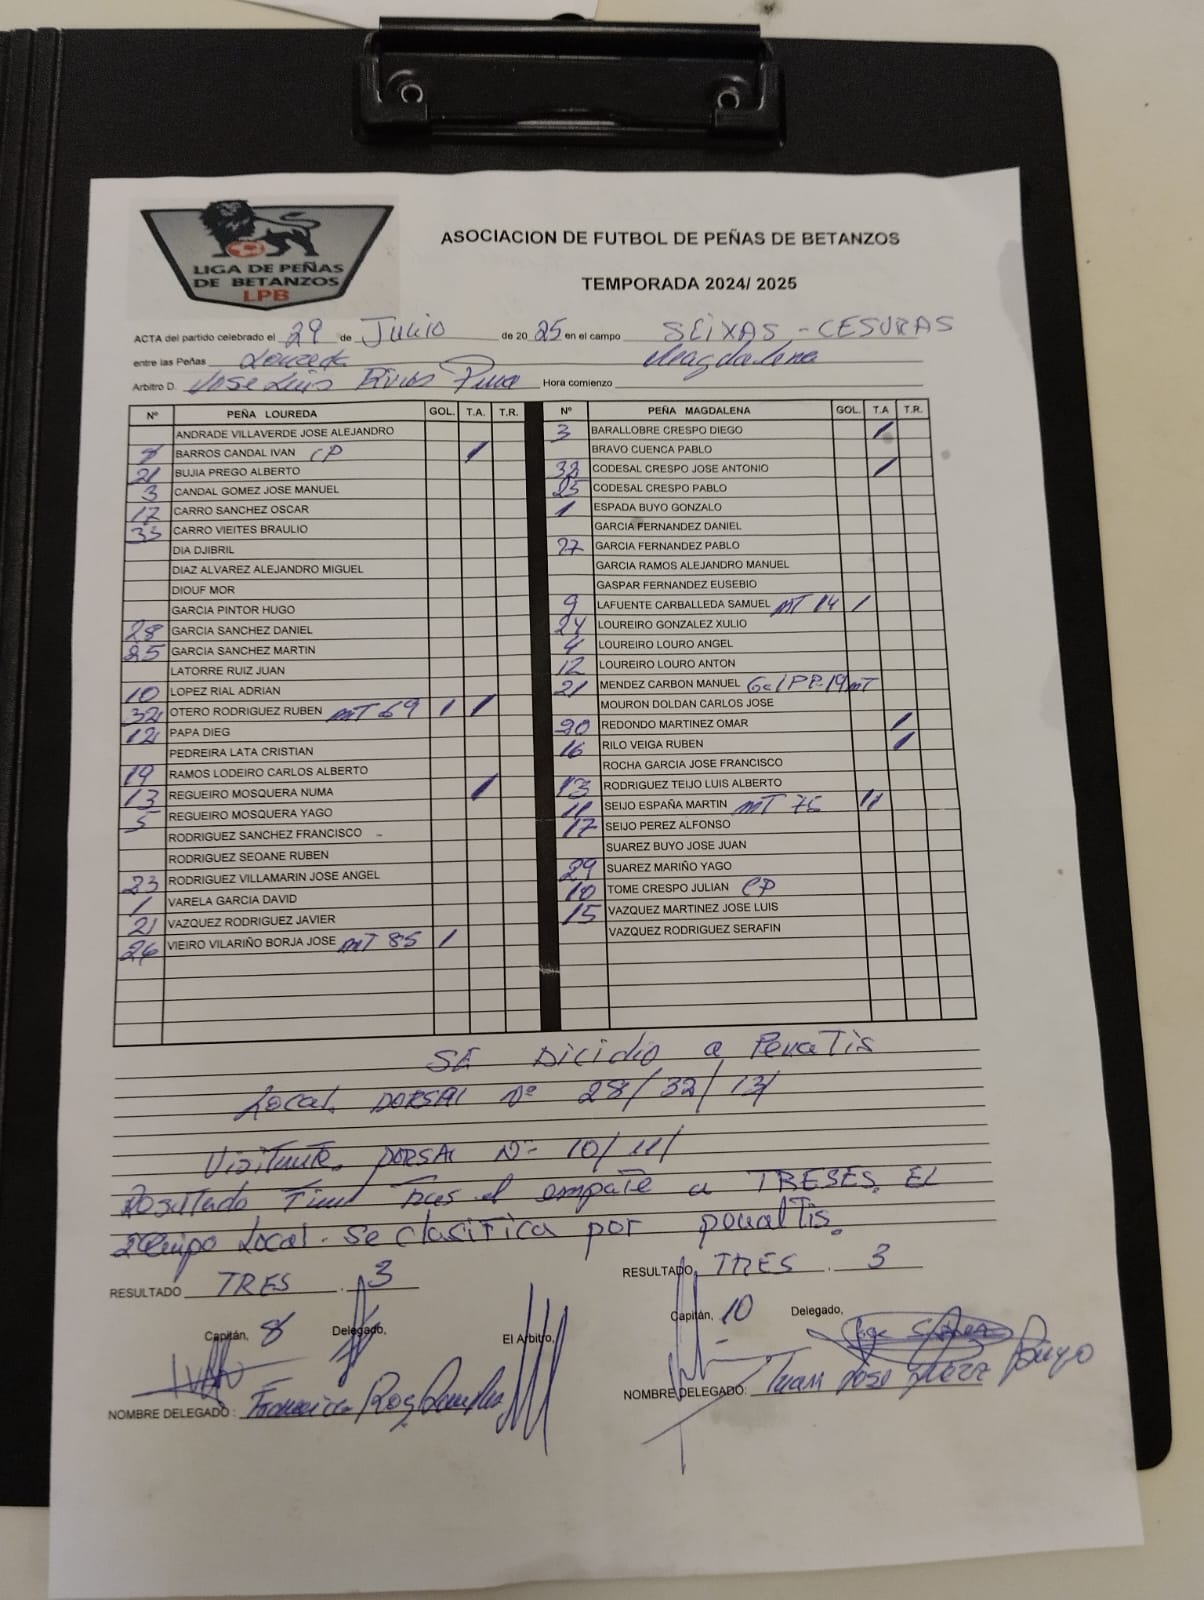 LIGA DE PEÑAS
DE BETANZOS
LPB
ASOCIACION DE FUTBOL DE PEÑAS DE BETANZOS
TEMPORADA 2024/ 2025
ACTA del partido celebrado el 29 de Junio de 2025 en el campo SEIXAS - CESURAS
entre las Peñas Loureda Magdalena
Arbitro D. Jose Luis Hora comienzo
Nº PEÑA LOUREDA GOL. T.A. T.R.
ANDRADE VILLAVERDE JOSE ALEJANDRO
8 BARROS CANDAL IVAN CP /
21 BUJIA PREGO ALBERTO
3 CANDAL GOMEZ JOSE MANUEL
17 CARRO SANCHEZ OSCAR
33 CARRO VIEITES BRAULIO
DIA DJIBRIL
DIAZ ALVAREZ ALEJANDRO MIGUEL
DIOUF MOR
GARCIA PINTOR HUGO
28 GARCIA SANCHEZ DANIEL
25 GARCIA SANCHEZ MARTIN
LATORRE RUIZ JUAN
10 LOPEZ RIAL ADRIAN
32 OTERO RODRIGUEZ RUBEN mT 69 / /
12 PAPA DIEG
PEDREIRA LATA CRISTIAN
19 RAMOS LODEIRO CARLOS ALBERTO
13 REGUEIRO MOSQUERA NUMA /
5 REGUEIRO MOSQUERA YAGO
RODRIGUEZ SANCHEZ FRANCISCO -
RODRIGUEZ SEOANE RUBEN
23 RODRIGUEZ VILLAMARIN JOSE ANGEL
1 VARELA GARCIA DAVID
21 VAZQUEZ RODRIGUEZ JAVIER
26 VIEIRO VILARIÑO BORJA JOSE mT 85 /
Nº PEÑA MAGDALENA GOL. T.A T.R.
3 BARALLOBRE CRESPO DIEGO /
BRAVO CUENCA PABLO
CODESAL CRESPO JOSE ANTONIO /
25 CODESAL CRESPO PABLO
1 ESPADA BUYO GONZALO
GARCIA FERNANDEZ DANIEL
27 GARCIA FERNANDEZ PABLO
GARCIA RAMOS ALEJANDRO MANUEL
GASPAR FERNANDEZ EUSEBIO
9 LAFUENTE CARBALLEDA SAMUEL mT 14 /
24 LOUREIRO GONZALEZ XULIO
4 LOUREIRO LOURO ANGEL
12 LOUREIRO LOURO ANTON
21 MENDEZ CARBON MANUEL Gol PP-19mT
MOURON DOLDAN CARLOS JOSE
20 REDONDO MARTINEZ OMAR /
16 RILO VEIGA RUBEN /
ROCHA GARCIA JOSE FRANCISCO
13 RODRIGUEZ TEIJO LUIS ALBERTO
11 SEIJO ESPAÑA MARTIN mT 76 //
17 SEIJO PEREZ ALFONSO
SUAREZ BUYO JOSE JUAN
29 SUAREZ MARIÑO YAGO
10 TOME CRESPO JULIAN CP
15 VAZQUEZ MARTINEZ JOSE LUIS
VAZQUEZ RODRIGUEZ SERAFIN
SE Dicidio a PenaTis
Local. DORSAl Nº 28/32/13/
Visitante. DORSAl Nº 10/11/
Resultado Final tras el empate a TRESES. EL
Equipo Local. Se clasifica por penalTis.
RESULTADO TRES . 3
RESULTADO TRES . 3
Capitán, 8 Delegado, El Arbitro, Capitán, 10 Delegado,
NOMBRE DELEGADO: Juan Jose Buyo
NOMBRE DELEGADO: